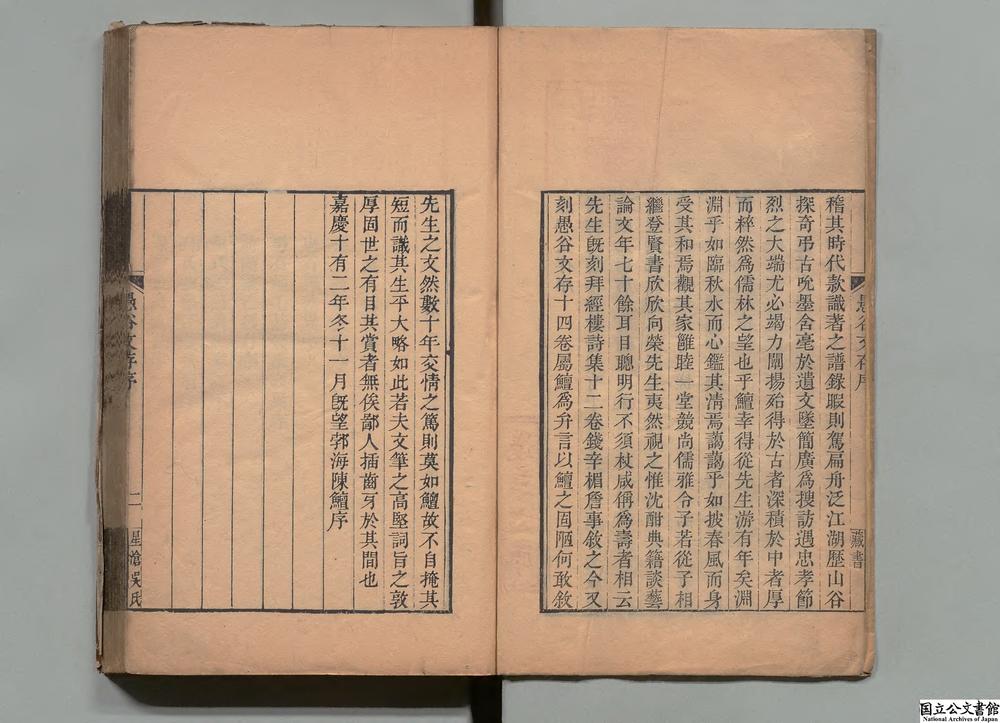 稽其時代款識著之譜錄暇則駕扁舟泛江湖歷山谷
探奇弔古吮墨含毫於遺文墜簡廣爲搜訪遇忠孝節
烈之大端尤必竭力闡揚殆得於古者深積於中者厚
而粹然爲儒林之望也乎鱣幸得從先生游有年矣淵
淵乎如臨秋水而心鑑其淸焉藹藹乎如披春風而身
受其和焉觀其家雝睦一堂競尚儒雅令子若從子相
繼登賢書欣欣向榮先生夷然視之惟沈酣典籍談藝
論文年七十餘耳目聰明行不須杖咸稱爲壽者相云
先生旣刻拜經樓詩集十二卷錢辛楣詹事敘之今又
刻愚谷文存十四卷屬鱣爲弁言以鱣之固陋何敢敘
愚谷文存序
藏書
先生之文然數十年交情之篤則莫如鱣故不自掩其
短而識其生平大略如此若夫文筆之高堅詞旨之敦
厚固世之有目共賞者無俟鄙人插齒牙於其間也
嘉慶十有二年冬十一月旣望郭海陳鱣序
愚谷文存序
二
星滄吳氏
国立公文書館
National Archives of Japan